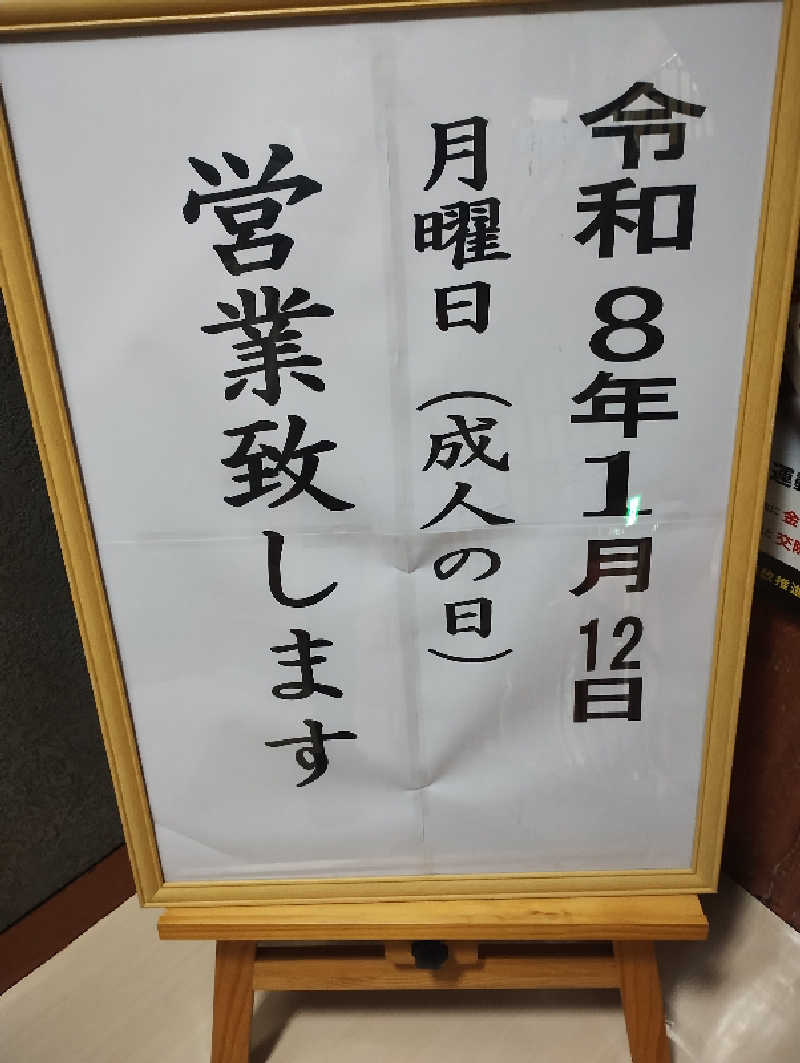 令和8年1月12日
月曜日（成人の日）
営業致します
金
交
推進